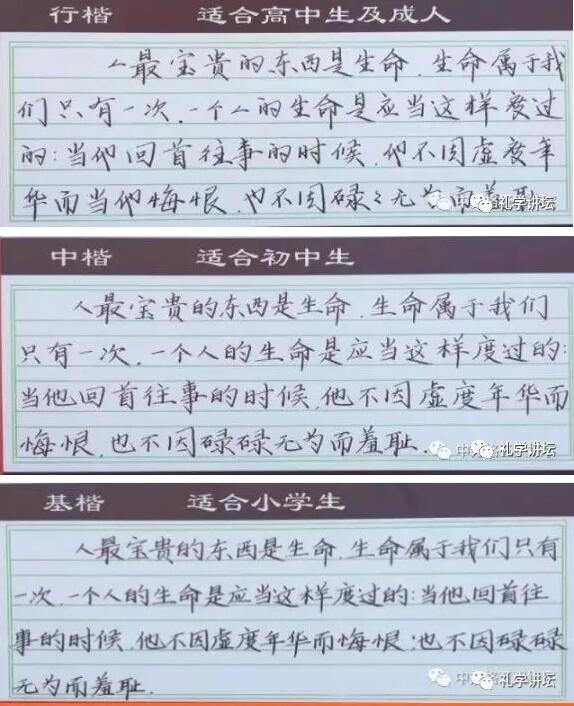 行楷 适合高中生及成人
人最宝贵的东西是生命.生命属于我
们只有一次.一个人的生命是应当这样度过
的:当他回首往事的时候,他不因虚度年
华而当他悔恨,也不因碌々无为而羞耻
礼学讲坛
中楷 适合初中生
人最宝贵的东西是生命.生命属于我们
只有一次.一个人的生命是应当这样度过的:
当他回首往事的时候,他不因虚度年华而
悔恨,也不因碌碌无为而羞耻.
中 礼学讲坛
基楷 适合小学生
人最宝贵的东西是生命.生命属于我们只有
一次.一个人的生命是应当这样度过的:当他回首往
事的时候,他不因虚度年华而悔恨;也不因碌碌
无为而羞耻.
中 礼学讲坛